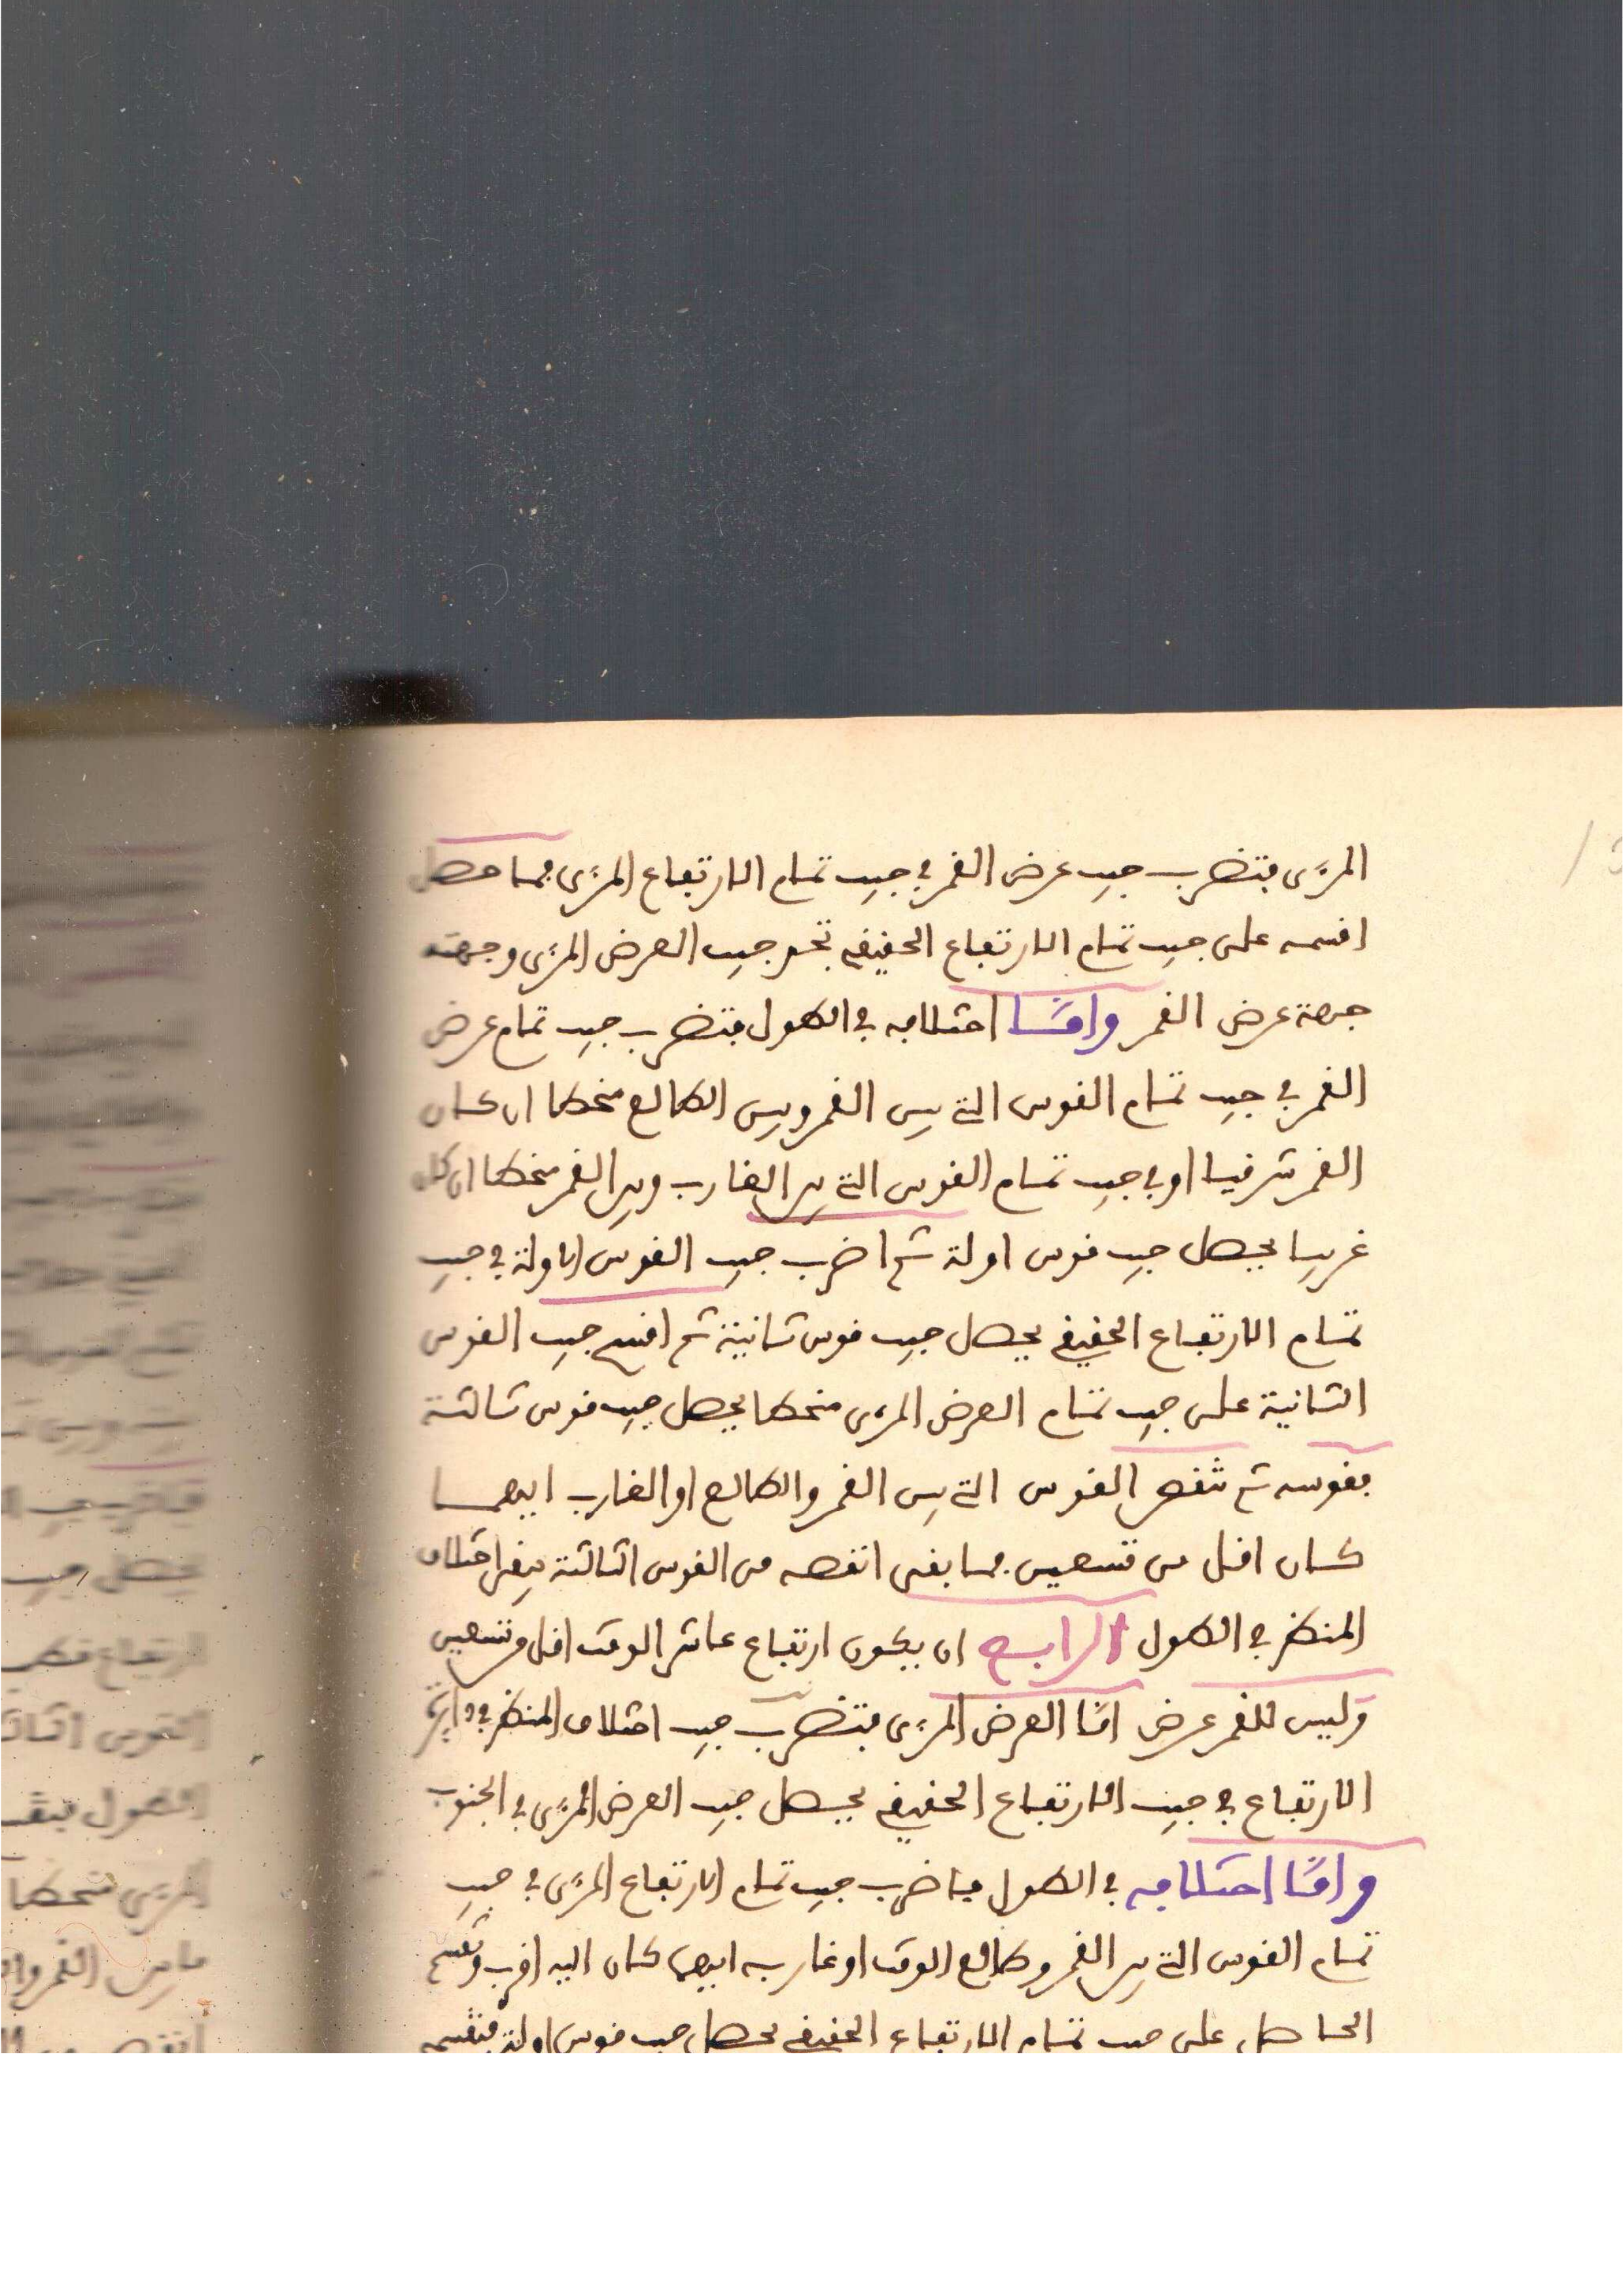 المرءى فتضرب جيب عرض القمر في جيب تمام الارتفاع المرءى فما حصل
اقسمه على جيب تمام الارتفاع الحقيقي تخرج جيب العرض المرءى وجهته
جهة عرض القمر وامّا اختلافه في الطول فتضرب جيب تمام عرض
القمر في جيب تمام القوس التي بين القمر وبين الطالع منحطا ان كان
القمر شرقيا او في جيب تمام القوس التي بين الغارب وبين القمر منحطا ان كان
غربيا يحصل جيب قوس اولة ثم اضرب جيب القوس الاولة في جيب
تمام الارتفاع الحقيقي يحصل جيب قوس ثانية ثم اقسم جيب القوس
الثانية على جيب تمام العرض المرءى منحطا يحصل جيب قوس ثالثة
فقوسه ثم تنقص القوس التي بين القمر والطالع او الغارب ايهما
كان اقل من تسعين فما بقى انقصه من القوس الثالثة يبقى اختلاف
المنظر في الطول الرابع ان يكون ارتفاع عاشر الوقت اقل من تسعين
وليس للقمر عرض امّا العرض المرءى فتضرب جيب اختلاف المنظر في دايرة
الارتفاع في جيب الارتفاع الحقيقي يحصل جيب العرض المرءى في الجنوب
وامّا اختلافه في الطول فاضرب جيب تمام الارتفاع المرءى في جيب
تمام القوس التي بين القمر وطالع الوقت او غاربه ايهما كان اليه اقرب وتقسم
الحاصل على جيب تمام الارتفاع الحقيقي يحصل جيب قوس اولة فتقسمه